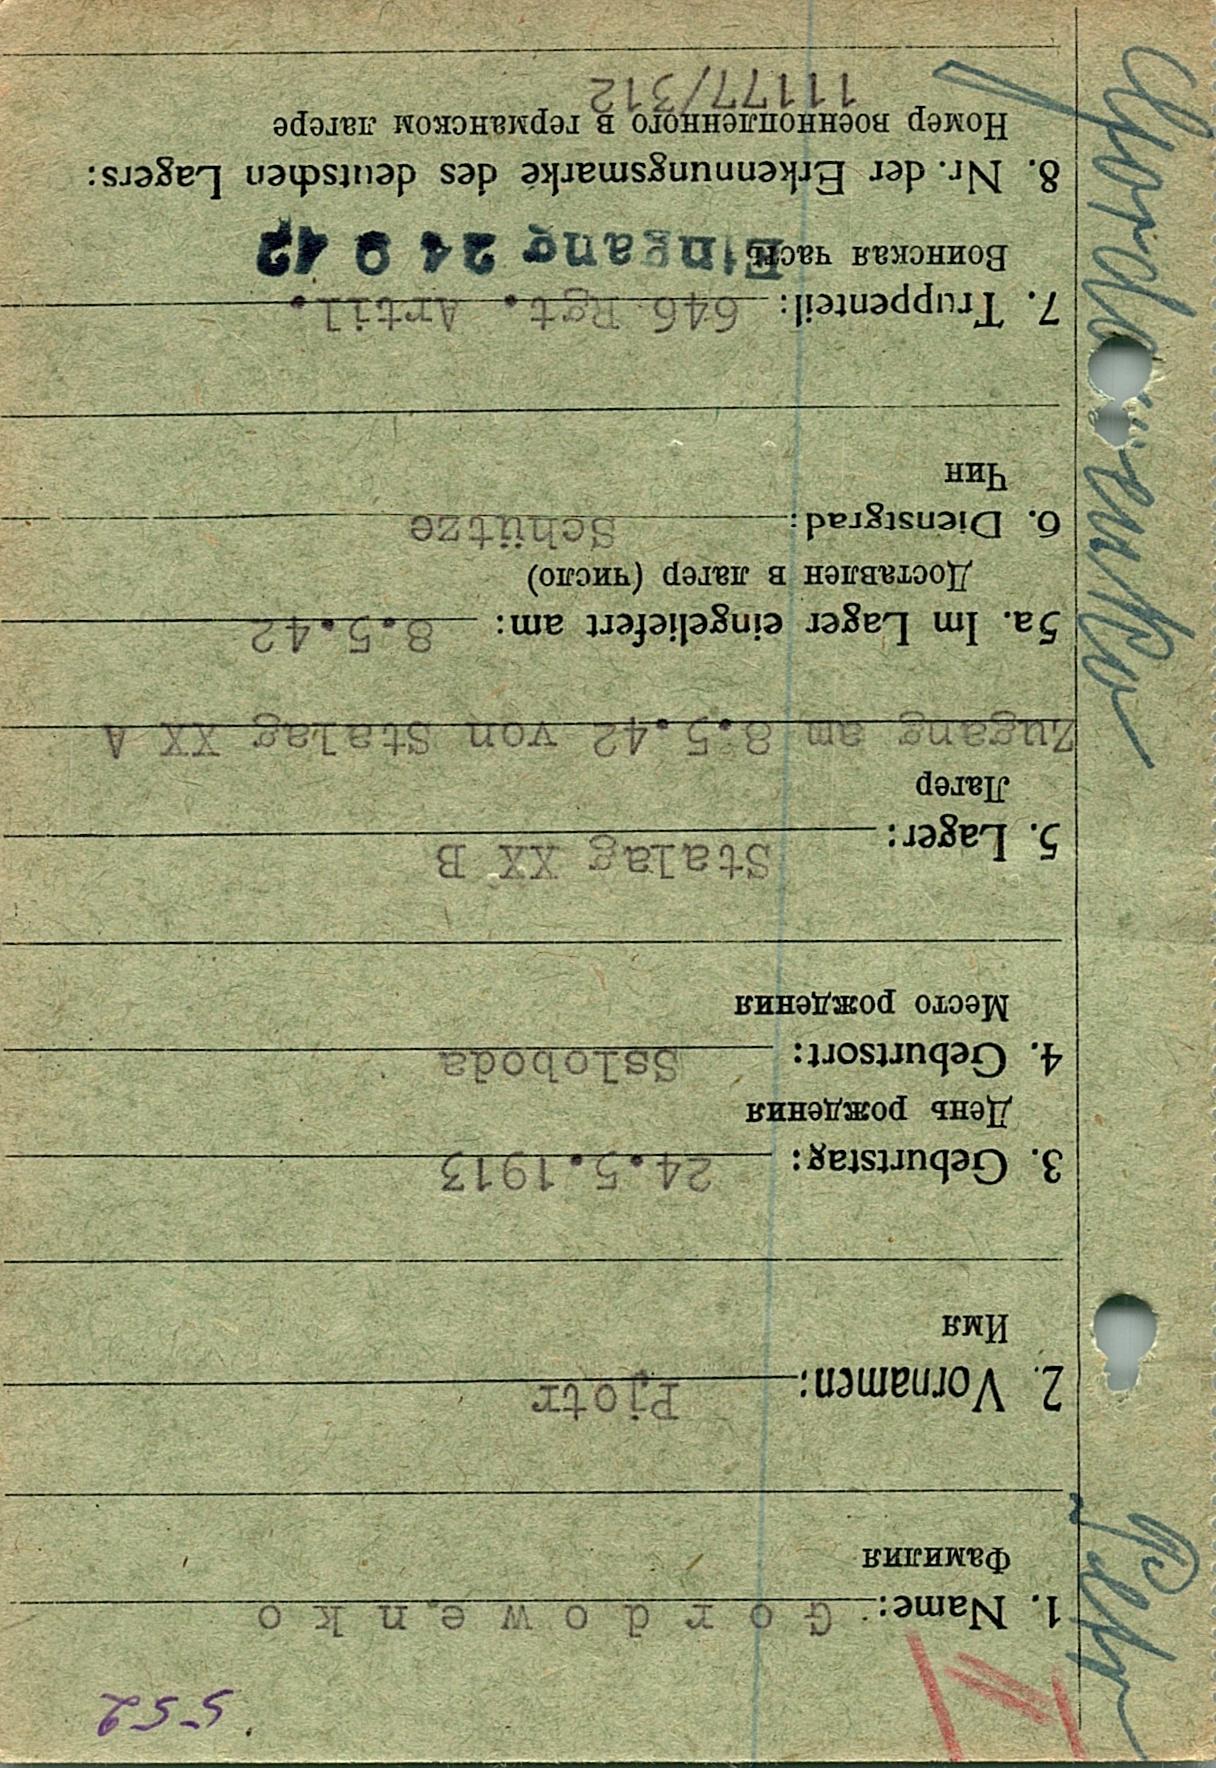 552
1. Name: Gordowenko
Фамилия
2. Vornamen: Pjotr
Имя
3. Geburtstag: 24.5.1913
День рождения
4. Geburtsort: Ssloboda
Место рождения
5. Lager: Stalag XX B
Лагер
Zugang am 8.5.42 von Stalag XX A
5a. Im Lager eingeliefert am: 8.5.42
Доставлен в лагер (число)
6. Dienstgrad: Schütze
Чин
7. Truppenteil: 646 Rgt. Artil.
Воинская часть Eingang 24 9 42
8. Nr. der Erkennungsmarke des deutschen Lagers:
Номер военнопленного в германском лагере
11177/312